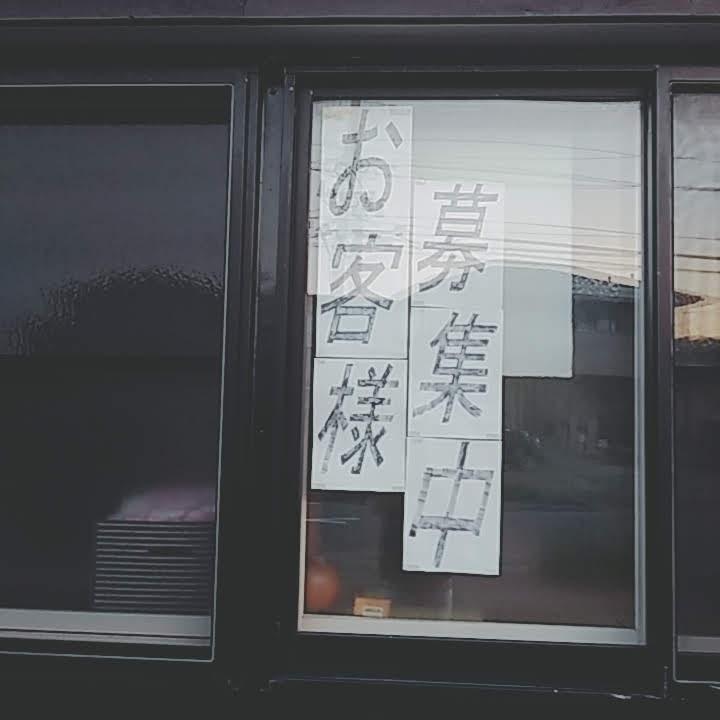 お客様
募集中